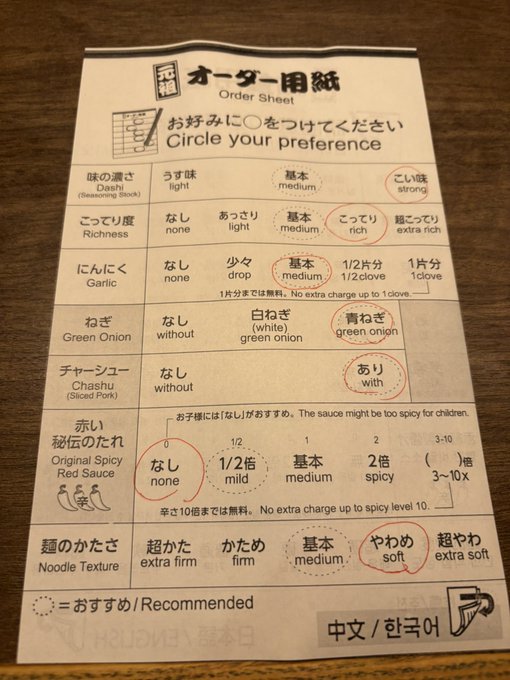 元祖 オーダー用紙
Order Sheet
お好みに○をつけてください
Circle your preference
味の濃さ うす味 基本 こい味
Dashi light medium strong
(Seasoning Stock)
こってり度 なし あっさり 基本 こってり 超こってり
Richness none light medium rich extra rich
にんにく なし 少々 基本 1/2片分 1片分
Garlic none drop medium 1/2clove 1clove
1片分までは無料。No extra charge up to 1clove.
ねぎ なし 白ねぎ 青ねぎ
Green Onion without (white) green onion green onion
チャーシュー なし あり
Chashu without with
(Sliced Pork)
お子様には「なし」がおすすめ。The sauce might be too spicy for children.
赤い
秘伝のたれ
0 1/2 1 2 3-10
なし 1/2倍 基本 2倍 ( )倍
Original Spicy Red Sauce none mild medium spicy 3〜10x
辛
辛さ10倍までは無料。No extra charge up to spicy level 10.
麺のかたさ 超かた かため 基本 やわめ 超やわ
Noodle Texture extra firm firm medium soft extra soft
=おすすめ/Recommended
中文 / 한국어
日本語/ENGLISH